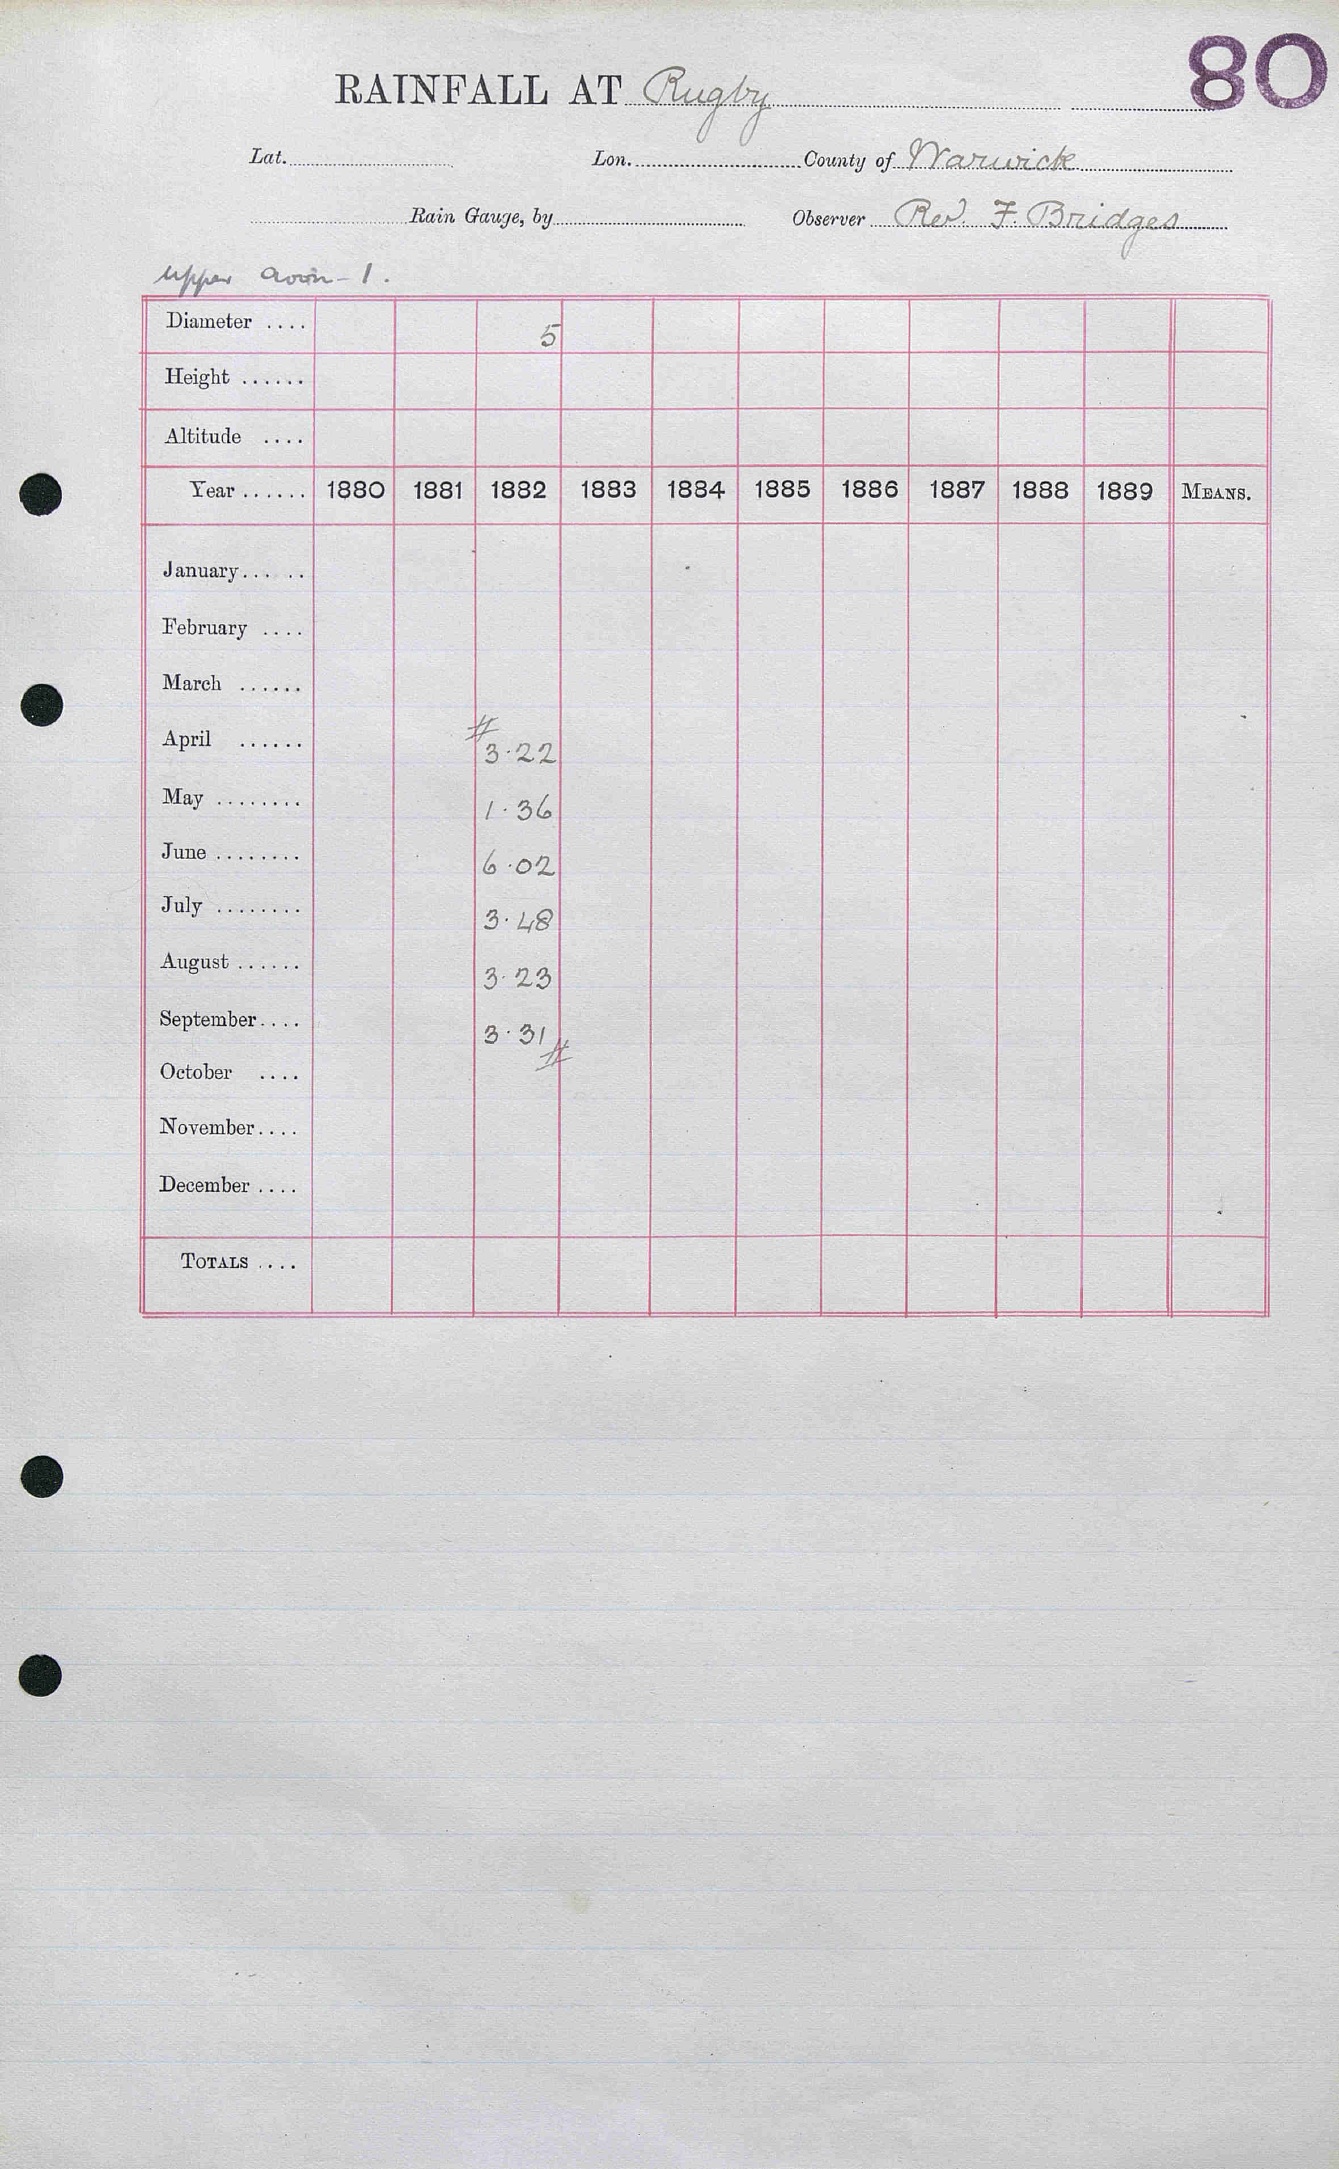 80
RAINFALL AT Rugby
Lat. Lon. County of Warwick
Rain Gauge, by Observer Rev. F. Bridges
Upper Avon - 1.
Diameter .... 5
Height ......
Altitude ....
Year ...... 1880 1881 1882 1883 1884 1885 1886 1887 1888 1889 MEANS.
January... ..
February ....
March ......
#
April ...... 3.22
May ........ 1.36
June ........ 6.02
July ........ 3.48
August ...... 3.23
September.... 3.31
#
October ....
November....
December ....
TOTALS ....